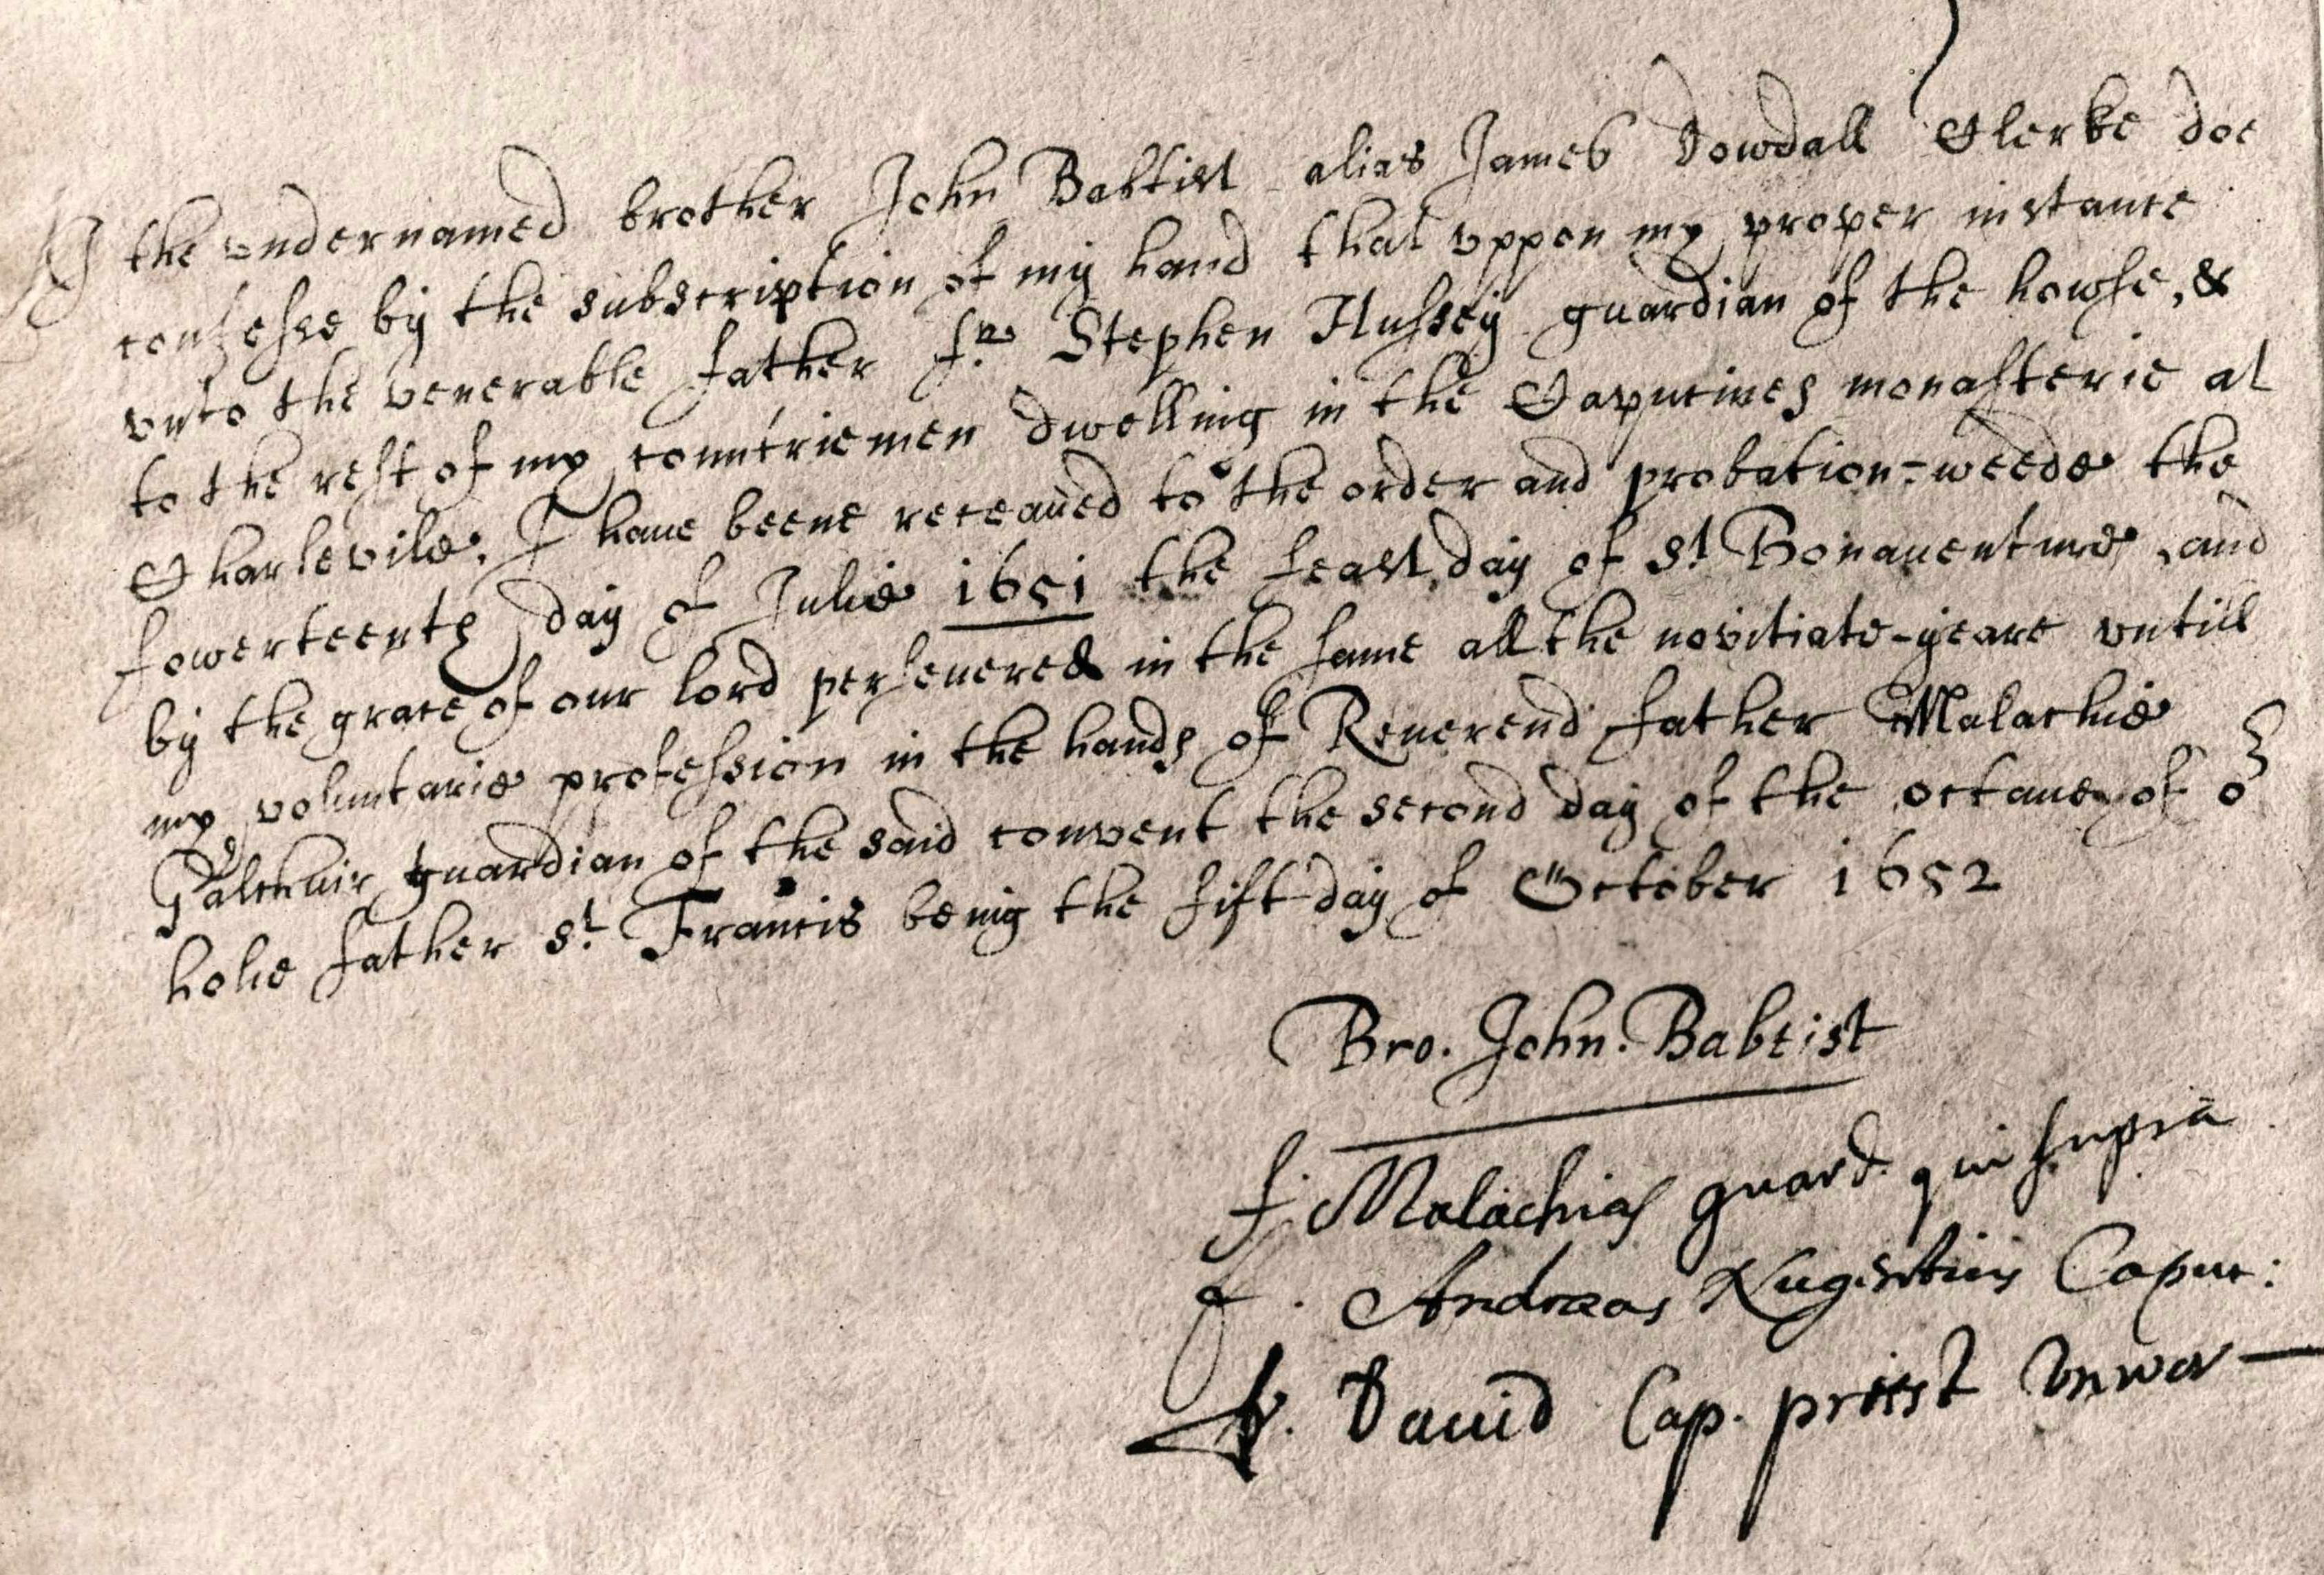 I the vndernamed brother John Babtist alias James Dowdall Clerke doe
confesse by the subscription of my hand that vppon my proper instance
vnto the venerable father fr. Stephen Hussey guardian of the howse, &
to the rest of my countriemen dwelling in the Capucines monasterie at
Charlevile, I haue beene receaued to the order and probation-weede the
fowerteenth day of Julie 1651 the feast day of St Bonauenture, and
by the grace of our lord perseuered in the same all the novitiate-yeare vntill
my voluntarie profession in the hands of Reuerend father Malachie
guardian of the said convent the second day of the octaue of or
holie father St. Francis being the fift day of October 1652
Bro. John. Babtist
f. Malachias guard. qui supra
f. Andreas Nugentius Capuc:
fr. Dauid Cap. priest vnwor—